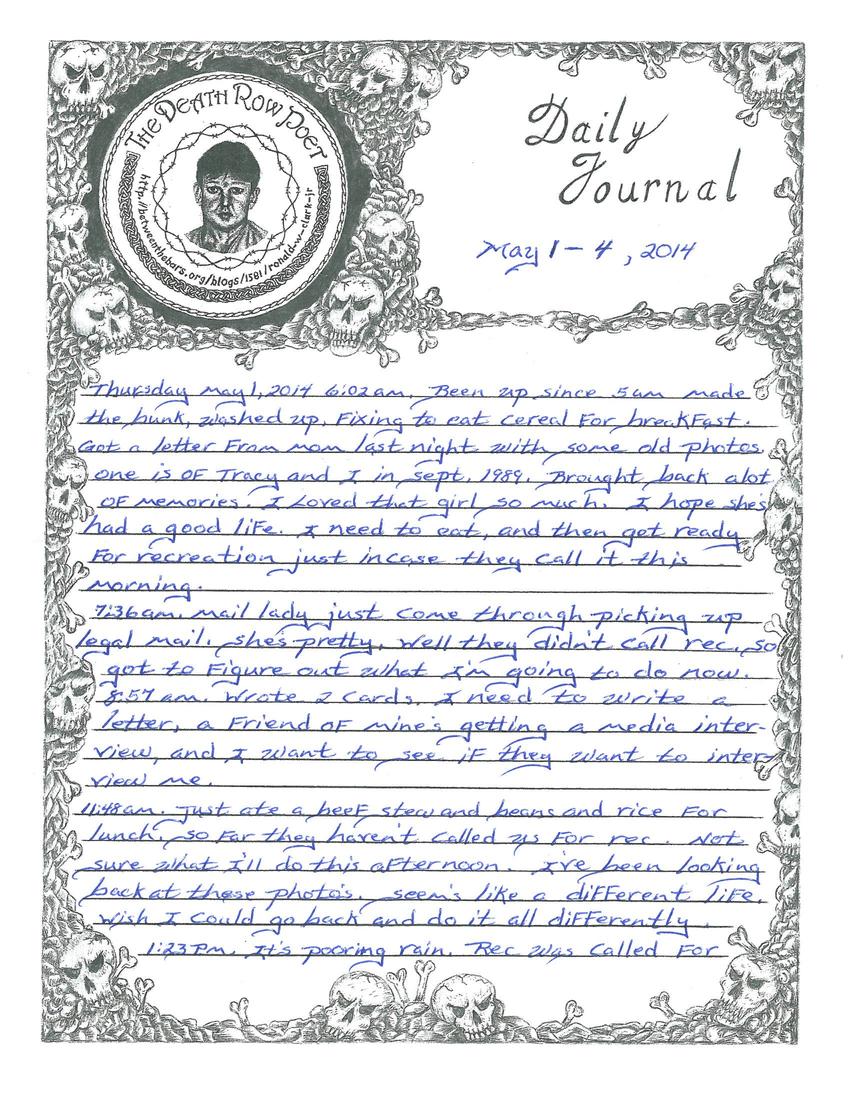 THE DEATH ROW POET
http://betweenthebars.org/blogs/1581/ronald-w-clark-jr
Daily
Journal
May 1 - 4, 2014
Thursday may 1, 2014 6:02 am. Been up since 5 am made
the bunk, washed up. Fixing to eat cereal For breakFast.
Got a letter From mom last night with some old photos.
one is oF Tracy and I in sept. 1989. Brought back alot
oF memories. I Loved that girl so much. I hope she's
had a good liFe. I need to eat, and then get ready
For recreation just incase they call it this
morning.
7:36 am. mail lady just come through picking up
legal mail. she's pretty. Well they didn't call rec. so
got to Figure out what I'm going to do now.
8:57 am. Wrote 2 cards. I need to write a
letter, a Friend oF mine's getting a media inter-
view, and I want to see iF they want to inter-
view me.
11:48 am. Just ate a beeF stew and beans and rice For
lunch, so Far they haven't called us For rec. Not
sure what I'll do this aFternoon. I've been looking
back at these photo's. seem's like a diFFerent liFe.
wish I could go back and do it all diFFerently.
1:23 Pm. It's pooring rain. Rec was called For